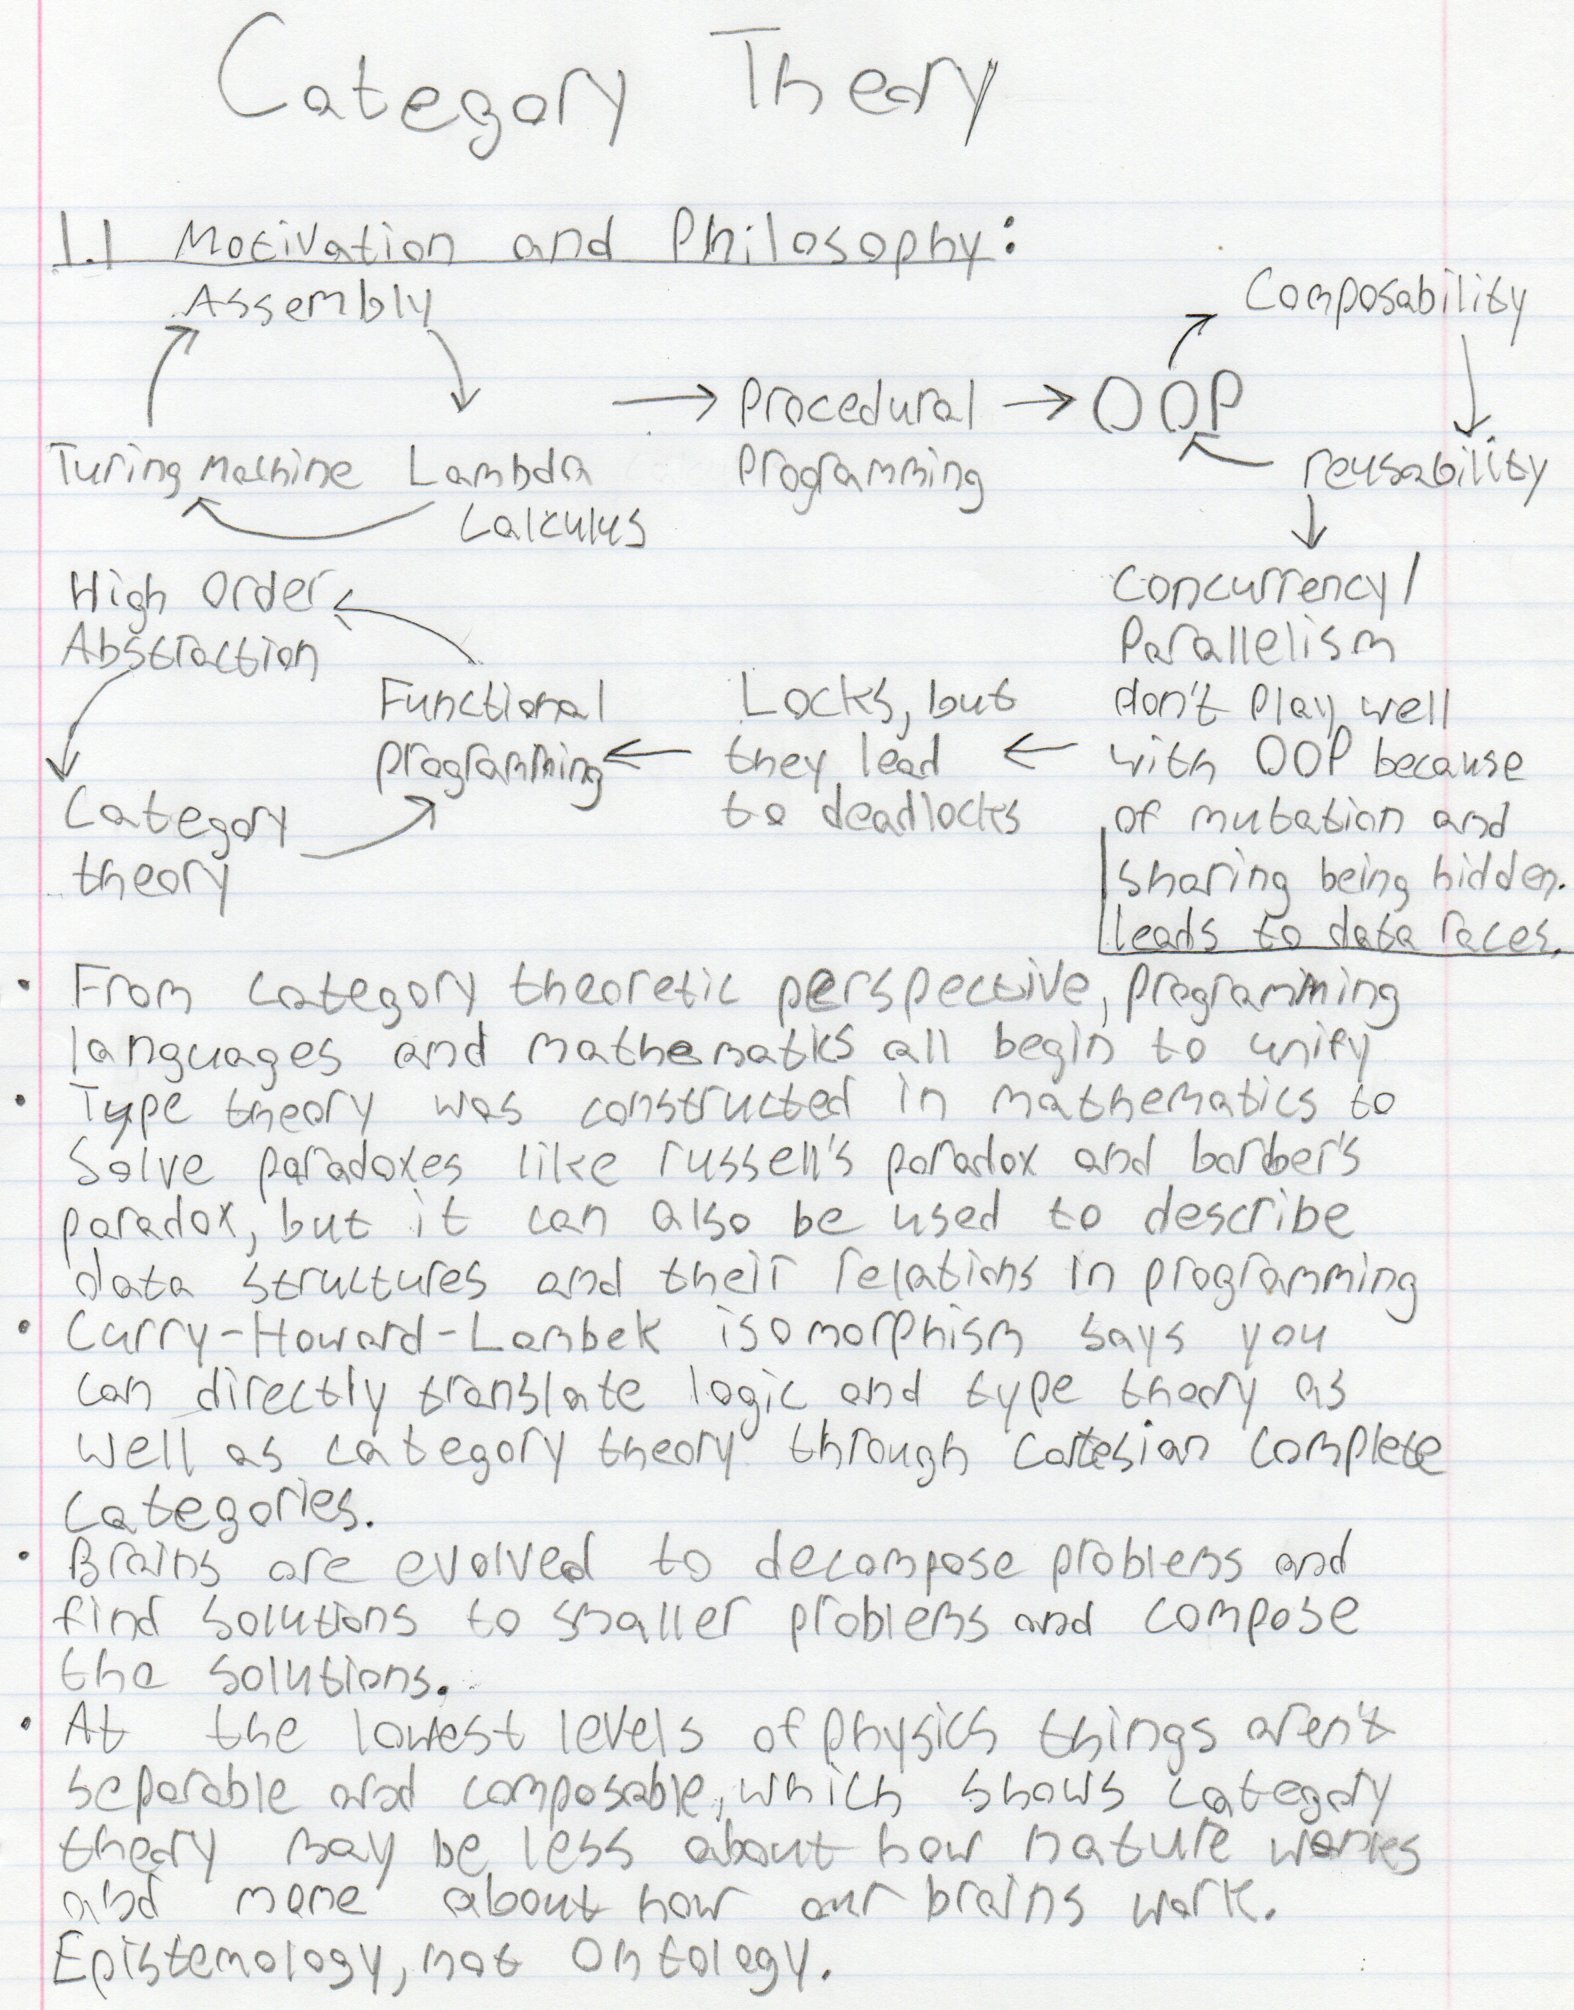 Category Theory
1.1 Motivation and Philosophy:
Assembly
Turing Machine
Lambda
Calculus
Procedural
Programming
OOP
Composability
reusability
Concurrency/
Parallelism
don't play well
with OOP because
of mutation and
sharing being hidden.
leads to data races.
Locks, but
they lead
to deadlocks
Functional
programming
High Order
Abstraction
Category
theory
• From category theoretic perspective, programming
languages and mathematics all begin to unify
• Type theory was constructed in mathematics to
Solve paradoxes like russell's paradox and barber's
paradox, but it can also be used to describe
data structures and their relations in programming
• Curry-Howard-Lambek isomorphism says you
can directly translate logic and type theory as
well as category theory through cartesian complete
categories.
• Brains are evolved to decompose problems and
find solutions to smaller problems and compose
the solutions.
• At the lowest levels of physics things aren't
separable and composable, which shows category
theory may be less about how nature works
and more about how our brains work.
Epistemology, not Ontology.